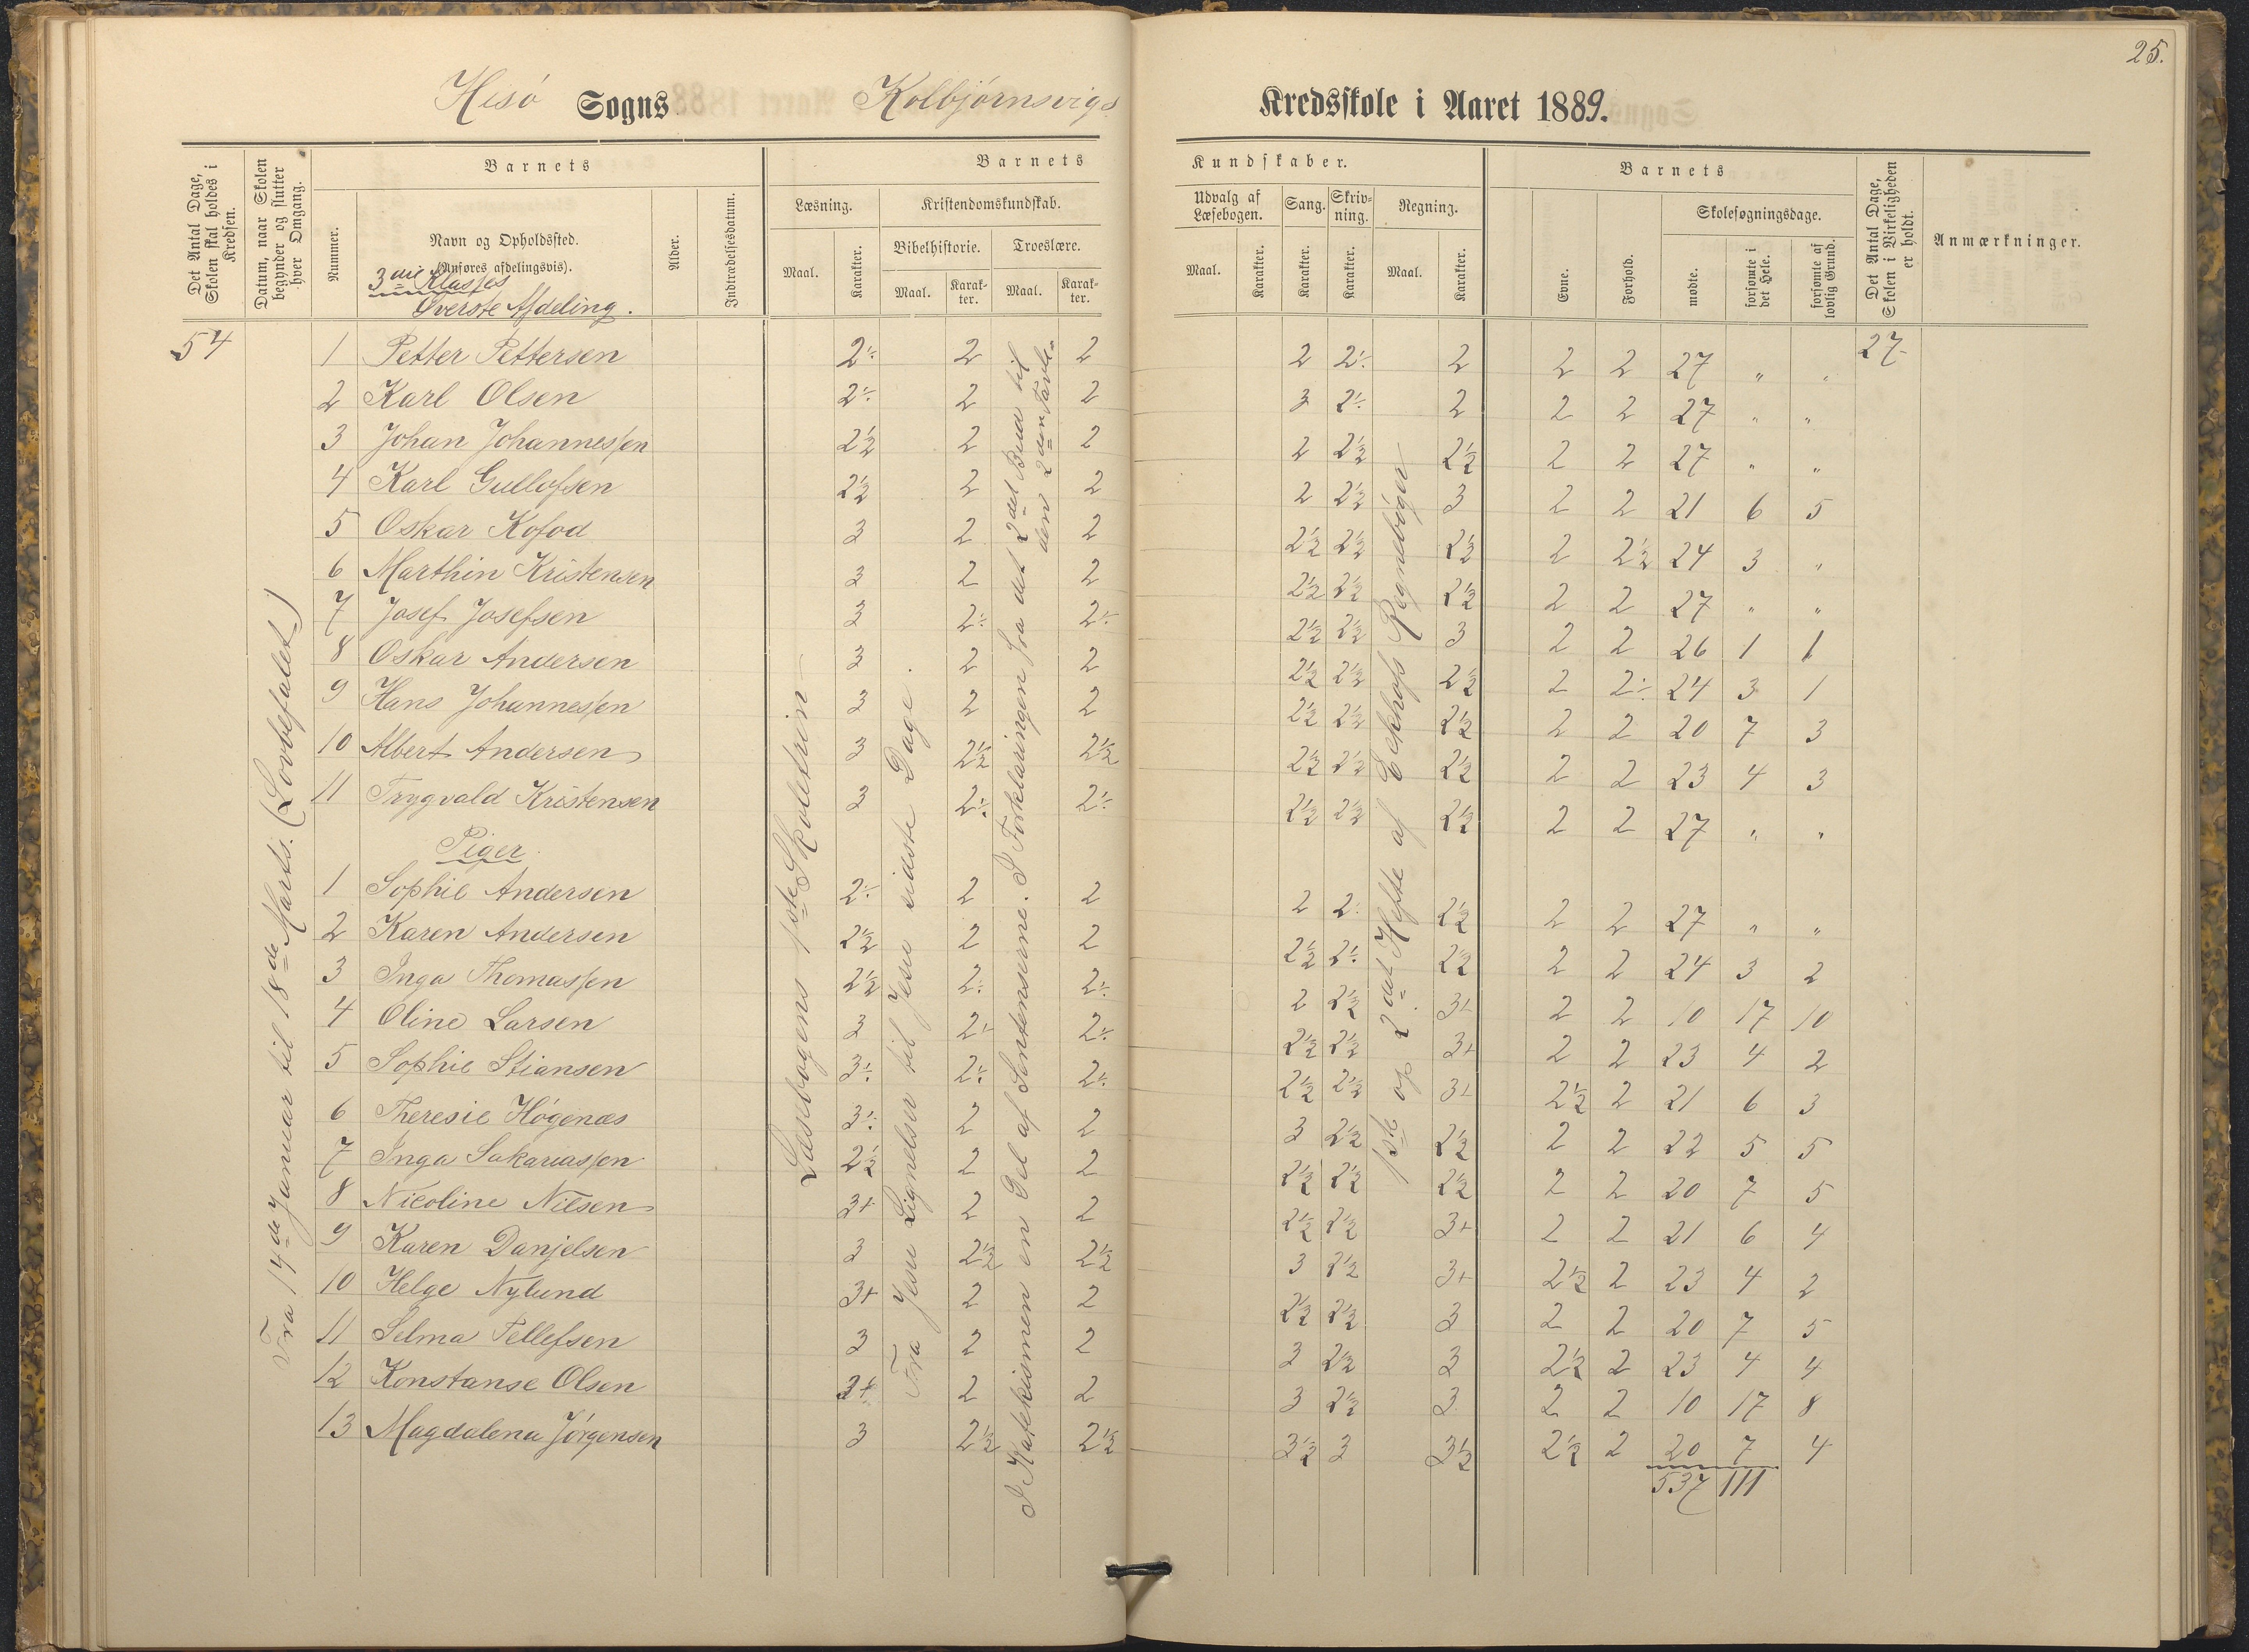 25.
Hisö Sogns Kolbjörnsvigs Kredsskole i Aaret 1889.
Det Antal Dage, Skolen skal holdes i Kredsen.
Datum, naar Skolen begynder og slutter hver Omgang.
Barnets
Nummer.
Navn og Opholdssted.
(Anføres afdelingsvis).
3die Klasses
Øverste Afdeling.
Alder.
Indtrædelsesdatum.
Barnets Kundskaber.
Læsning.
Maal.
Karakter.
Kristendomskundskab.
Bibelhistorie.
Maal.
Karakter.
Troeslære.
Maal.
Karakter.
Udvalg af Læsebogen.
Maal.
Karakter.
Sang.
Karakter.
Skrivning.
Karakter.
Regning.
Maal.
Karakter.
Barnets
Evne.
Forhold.
Skolesøgningsdage.
mødte.
forsømte i det Hele.
forsømte af lovlig Grund.
Det Antal Dage, Skolen i Virkeligheden er holdt.
Anmærkninger.
54
Fra 14de Januar til 18de Marts. (Lovbefalet)
Læsebogens 1ste Skoletrin
Fra Jesu Lignelser til Jesu sidste Dage.
I Katekismen en Del af Sentenserne. I Forklaringen fra det 2det Bud til
den 2den Tavle.
1ste og 2det Hefte af Eckhofs Regnebøger
27
1 Petter Pettersen 2÷ 2 2 2 2÷ 2 2 2 27 " "
2 Karl Olsen 2÷ 2 2 3 2÷ 2 2 2 27 " "
3 Johan Johannessen 2½ 2 2 2 2½ 2½ 2 2 27 " "
4 Karl Gullofsen 2½ 2 2 2 2½ 3 2 2 21 6 5
5 Oskar Kofod 3 2 2 2½ 2½ 2½ 2 2½ 24 3 "
6 Marthin Kristensen 3 2 2 2½ 2½ 2½ 2 2 27 " "
7 Josef Josefsen 3 2÷ 2÷ 2½ 2½ 3 2 2 26 1 1
8 Oskar Andersen 3 2 2 2½ 2½ 2½ 2 2÷ 24 3 1
9 Hans Johannessen 3 2 2 2½ 2½ 2½ 2 2 20 7 3
10 Albert Andersen 3 2½ 2½ 2½ 2½ 2½ 2 2 23 4 3
11 Trygvald Kristensen 3 2÷ 2÷ 2½ 2½ 2½ 2 2 27 " "
Piger
1 Sophie Andersen 2÷ 2 2 2 2÷ 2½ 2 2 27 " "
2 Karen Andersen 2½ 2 2 2½ 2÷ 2½ 2 2 24 3 2
3 Inga Thomassen 2½ 2÷ 2÷ 2 2½ 3+ 2 2 10 17 10
4 Oline Larsen 3 2÷ 2÷ 2½ 2½ 3+ 2 2 23 4 2
5 Sophie Stiansen 3÷ 2÷ 2÷ 2½ 2½ 3+ 2½ 2 21 6 3
6 Theresie Högenæs 3÷ 2 2 3 2½ 2½ 2 2 22 5 5
7 Inga Sakariassen 2½ 2 2 2½ 2½ 2½ 2 2 20 7 5
8 Nicoline Nilsen 3+ 2 2 2½ 2½ 3+ 2 2 21 6 4
9 Karen Danjelsen 3 2½ 2½ 3 2½ 3+ 2½ 2 23 4 2
10 Helge Nylund 3+ 2 2 2½ 2½ 3 2 2 20 7 5
11 Selma Tellefsen 3 2 2 3 2½ 3 2½ 2 23 4 4
12 Konstanse Olsen 3+ 2 2 3 2½ 3 2 2 10 17 8
13 Magdalena Jörgensen 3 2½ 2½ 3½ 3 3½ 2½ 2 20 7 4
537 111